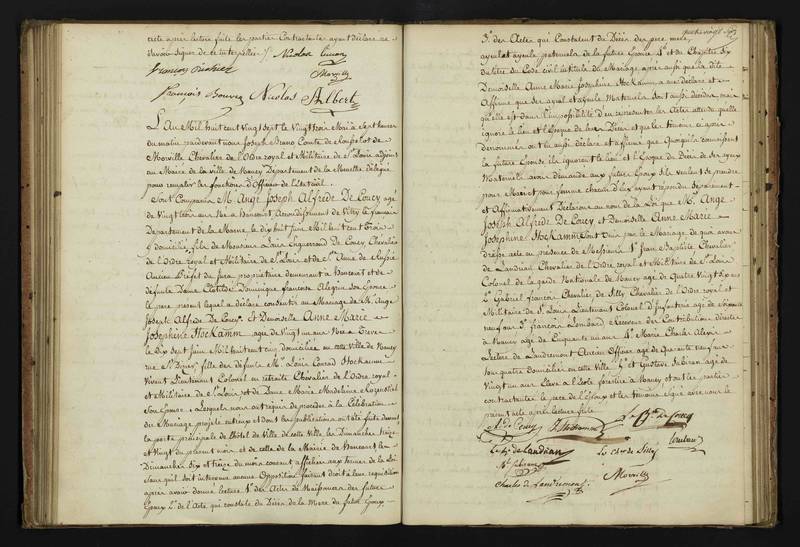 acte après lecture faite les parties Contractantes ayant déclaré ne
Savoir Signer de ce interpellés /. Nicolas
François
Morville
François Bouvier Nicolas Albert
L'An Mil huit cent Vingt Sept le Vingt trois Mai à Sept heures
du matin pardevant nous Joseph Bruno Comte de
Morville Chevalier de l'Ordre royal et Militaire de St. Louis adjoint
au Maire de la ville de Nancy Département de la Meurthe délégué
pour remplir les fonctions d'Officier de l'Etat civil.
Sont Comparus M. Ange Joseph Alfrède De Coucy agé
de Vingt trois ans Né à hancourt Arrondissement de Vitry le français
Département de la Marne le dix huit Juin Mil huit cent trois
y domicilié, fils de Monsieur Louis Enguerrand De Coucy Chevalier
de l'Ordre royal et Militaire de St. Louis et de Ste. Anne de Russie
Ancien Préfet du Jura propriétaire demeurant à hancourt et de
défunte Dame Clotilde Dominique françoise Son Epouse
le père présent lequel a déclaré consentir au Mariage de M. Ange
Joseph Alfrède De Coucy. Et Demoiselle Anne Marie
Joséphine Stockamm, agée de Vingt un ans Née à Trèves
le Dix Sept Juin Mil huit cent domiciliée en cette Ville de Nancy
rue St. fille des défunts M. Louis Conrad Stockamm
Vivant Lieutenant Colonel en retraite Chevalier de l'Ordre royal
et Militaire de St. Louis et de Dame Marie Madeleine
Son Epouse. Lesquels nous ont requis de procéder à la Célébration
du Mariage projeté entr'eux et dont les publications ont été faites devant
la porte principale de l'hôtel de Ville de cette Ville, les Dimanches treize
et Vingt du présent mois et de celle de la Mairie de hancourt les
Dimanches Six et treize du mois courant affichées aux termes de la Loi
Sans qu'il soit intervenu aucune Opposition faisant droit à leur requisition
après avoir donné lecture 1°. des Actes de Naissances des futurs
Epoux 2°. de l'Acte qui constate le Décès de la Mère du futur Epoux,
3°. des Actes qui Constatent les Décès des père mère,
ayeul et ayeule paternels de la future Epouse 4°. et du Chapitre Six
du titre du Code civil intitulé du Mariage après aussi que la dite
Demoiselle Anne Marie Joséphine Stockamm a déclaré et
Affirmé que Ses ayeul et ayeule Maternels Sont aussi décédés, mais
qu'elle est dans l'impossibilité d'en représenter les Actes attendu qu'elle
ignore le lieu et l'époque de leurs Décès et que les témoins ci après
dénommés ont aussi déclaré et affirmé que Quoiqu'ils connaissent
la future Epouse ils ignorent le lieu et l'Epoque du Décès de Ses ayeux
Maternels avons demandé aux futurs Epoux S'ils veulent se prendre
pour Mari et pour femme chacun d'eux ayant répondu Séparément
et Affirmativement Déclarons au nom de la Loi que Mr. Ange
Joseph Alfrède De Coucy et Demoiselle Anne Marie
Joséphine Stockamm Sont Unis par le Mariage de quoi avons
dressé acte en présence de Messieurs 1°. Jean Baptiste Chevalier
de Landrian Chevalier de l'Ordre royal et Militaire de St. Louis
Colonel de la garde Nationale de Nancy agé de Quatre Vingt
2°. Gabriel françois Chevalier de Silly Chevalier de l'Ordre royal et
Militaire de St. Louis Lieutenant Colonel d'Infanterie agé de Soixante
neuf ans 3°. françois Lombard Receveur des Contributions directes
à Nancy agé de Cinquante un ans 4°. Marie Charles Alexis
Leclerc de Landremont Ancien Officier agé de Quarante neuf ans
tous quatre Domiciliés en cette Ville, 5°. et Gustave agé de
Vingt un ans Elève à l'école forestière à Nancy et ont les parties
contractantes, le père de l'Epoux et les témoins Signé avec nous le
présent acte après lecture faite.
A. de Coucy J. Stockamm de Coucy
Le Ch. de Landrian Le Cher. de Silly
Charles de Landremont Morville